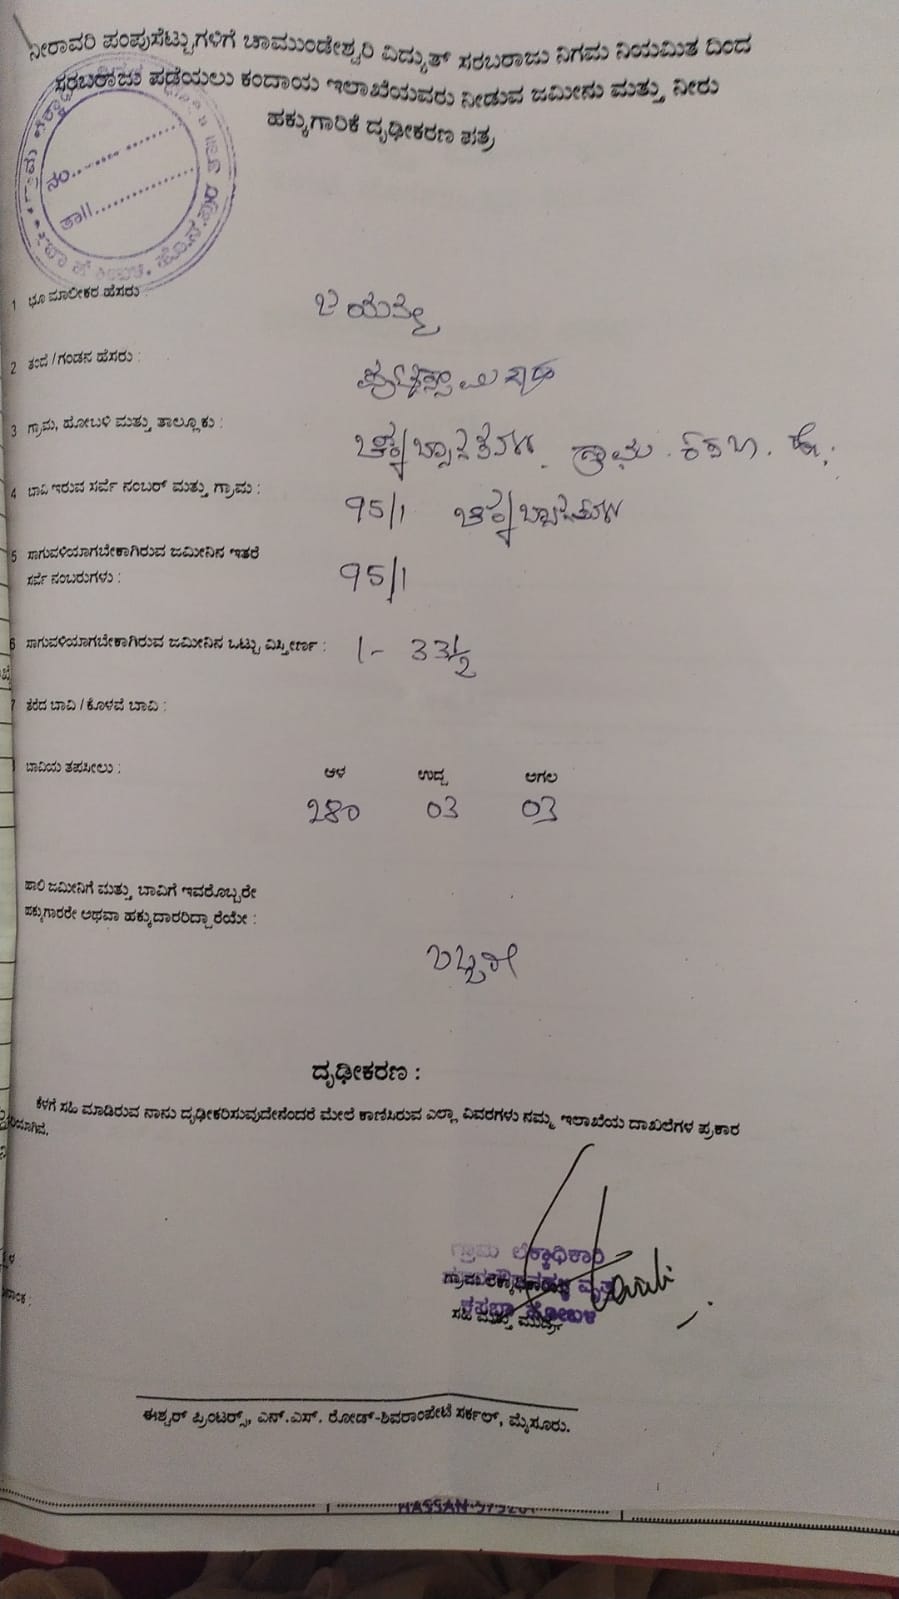 ನೀರಾವರಿ ಪಂಪುಸೆಟ್ಟುಗಳಿಗೆ ಚಾಮುಂಡೇಶ್ವರಿ ವಿದ್ಯುತ್ ಸರಬರಾಜು ನಿಗಮ ನಿಯಮಿತ ದಿಂದ
ಸರಬರಾಜು ಪಡೆಯಲು ಕಂದಾಯ ಇಲಾಖೆಯವರು ನೀಡುವ ಜಮೀನು ಮತ್ತು ನೀರು
ಹಕ್ಕುಗಾರಿಕೆ ದೃಢೀಕರಣ ಪತ್ರ
ನಂ..........
ತಾ||..........
1 ಭೂ ಮಾಲೀಕರ ಹೆಸರು :
2 ತಂದೆ / ಗಂಡನ ಹೆಸರು :
3 ಗ್ರಾಮ, ಹೋಬಳಿ ಮತ್ತು ತಾಲ್ಲೂಕು : ಗ್ರಾಮ. ಕಸಬಾ. ಹೋ.
4 ಬಾವಿ ಇರುವ ಸರ್ವೆ ನಂಬರ್ ಮತ್ತು ಗ್ರಾಮ : 95/1
5 ಸಾಗುವಳಿಯಾಗಬೇಕಾಗಿರುವ ಜಮೀನಿನ ಇತರೆ
ಸರ್ವೆ ನಂಬರುಗಳು : 95/1
6 ಸಾಗುವಳಿಯಾಗಬೇಕಾಗಿರುವ ಜಮೀನಿನ ಒಟ್ಟು ವಿಸ್ತೀರ್ಣ : 1- 33 1/2
7 ತೆರೆದ ಬಾವಿ / ಕೊಳವೆ ಬಾವಿ :
ಬಾವಿಯ ತಪಸೀಲು : ಆಳ ಉದ್ದ ಅಗಲ
280 03 03
ಹಾಲಿ ಜಮೀನಿಗೆ ಮತ್ತು ಬಾವಿಗೆ ಇವರೊಬ್ಬರೇ
ಹಕ್ಕುಗಾರರೇ ಅಥವಾ ಹಕ್ಕುದಾರರಿದ್ದಾರೆಯೇ :
ಒಬ್ಬರೇ
ದೃಢೀಕರಣ :
ಕೆಳಗೆ ಸಹಿ ಮಾಡಿರುವ ನಾನು ದೃಢೀಕರಿಸುವುದೇನೆಂದರೆ ಮೇಲೆ ಕಾಣಿಸಿರುವ ಎಲ್ಲಾ ವಿವರಗಳು ನಮ್ಮ ಇಲಾಖೆಯ ದಾಖಲೆಗಳ ಪ್ರಕಾರ
ಗ್ರಾಮ ಲೆಕ್ಕಾಧಿಕಾರಿ
ಕಸಬಾ ಹೋಬಳಿ
ಸಹಿ ಮತ್ತು ಮುದ್ರೆ
ಈಶ್ವರ್ ಪ್ರಿಂಟರ್ಸ್, ಎನ್.ಎಸ್. ರೋಡ್-ಶಿವರಾಂಪೇಟೆ ಸರ್ಕಲ್, ಮೈಸೂರು.
HASSAN-573201